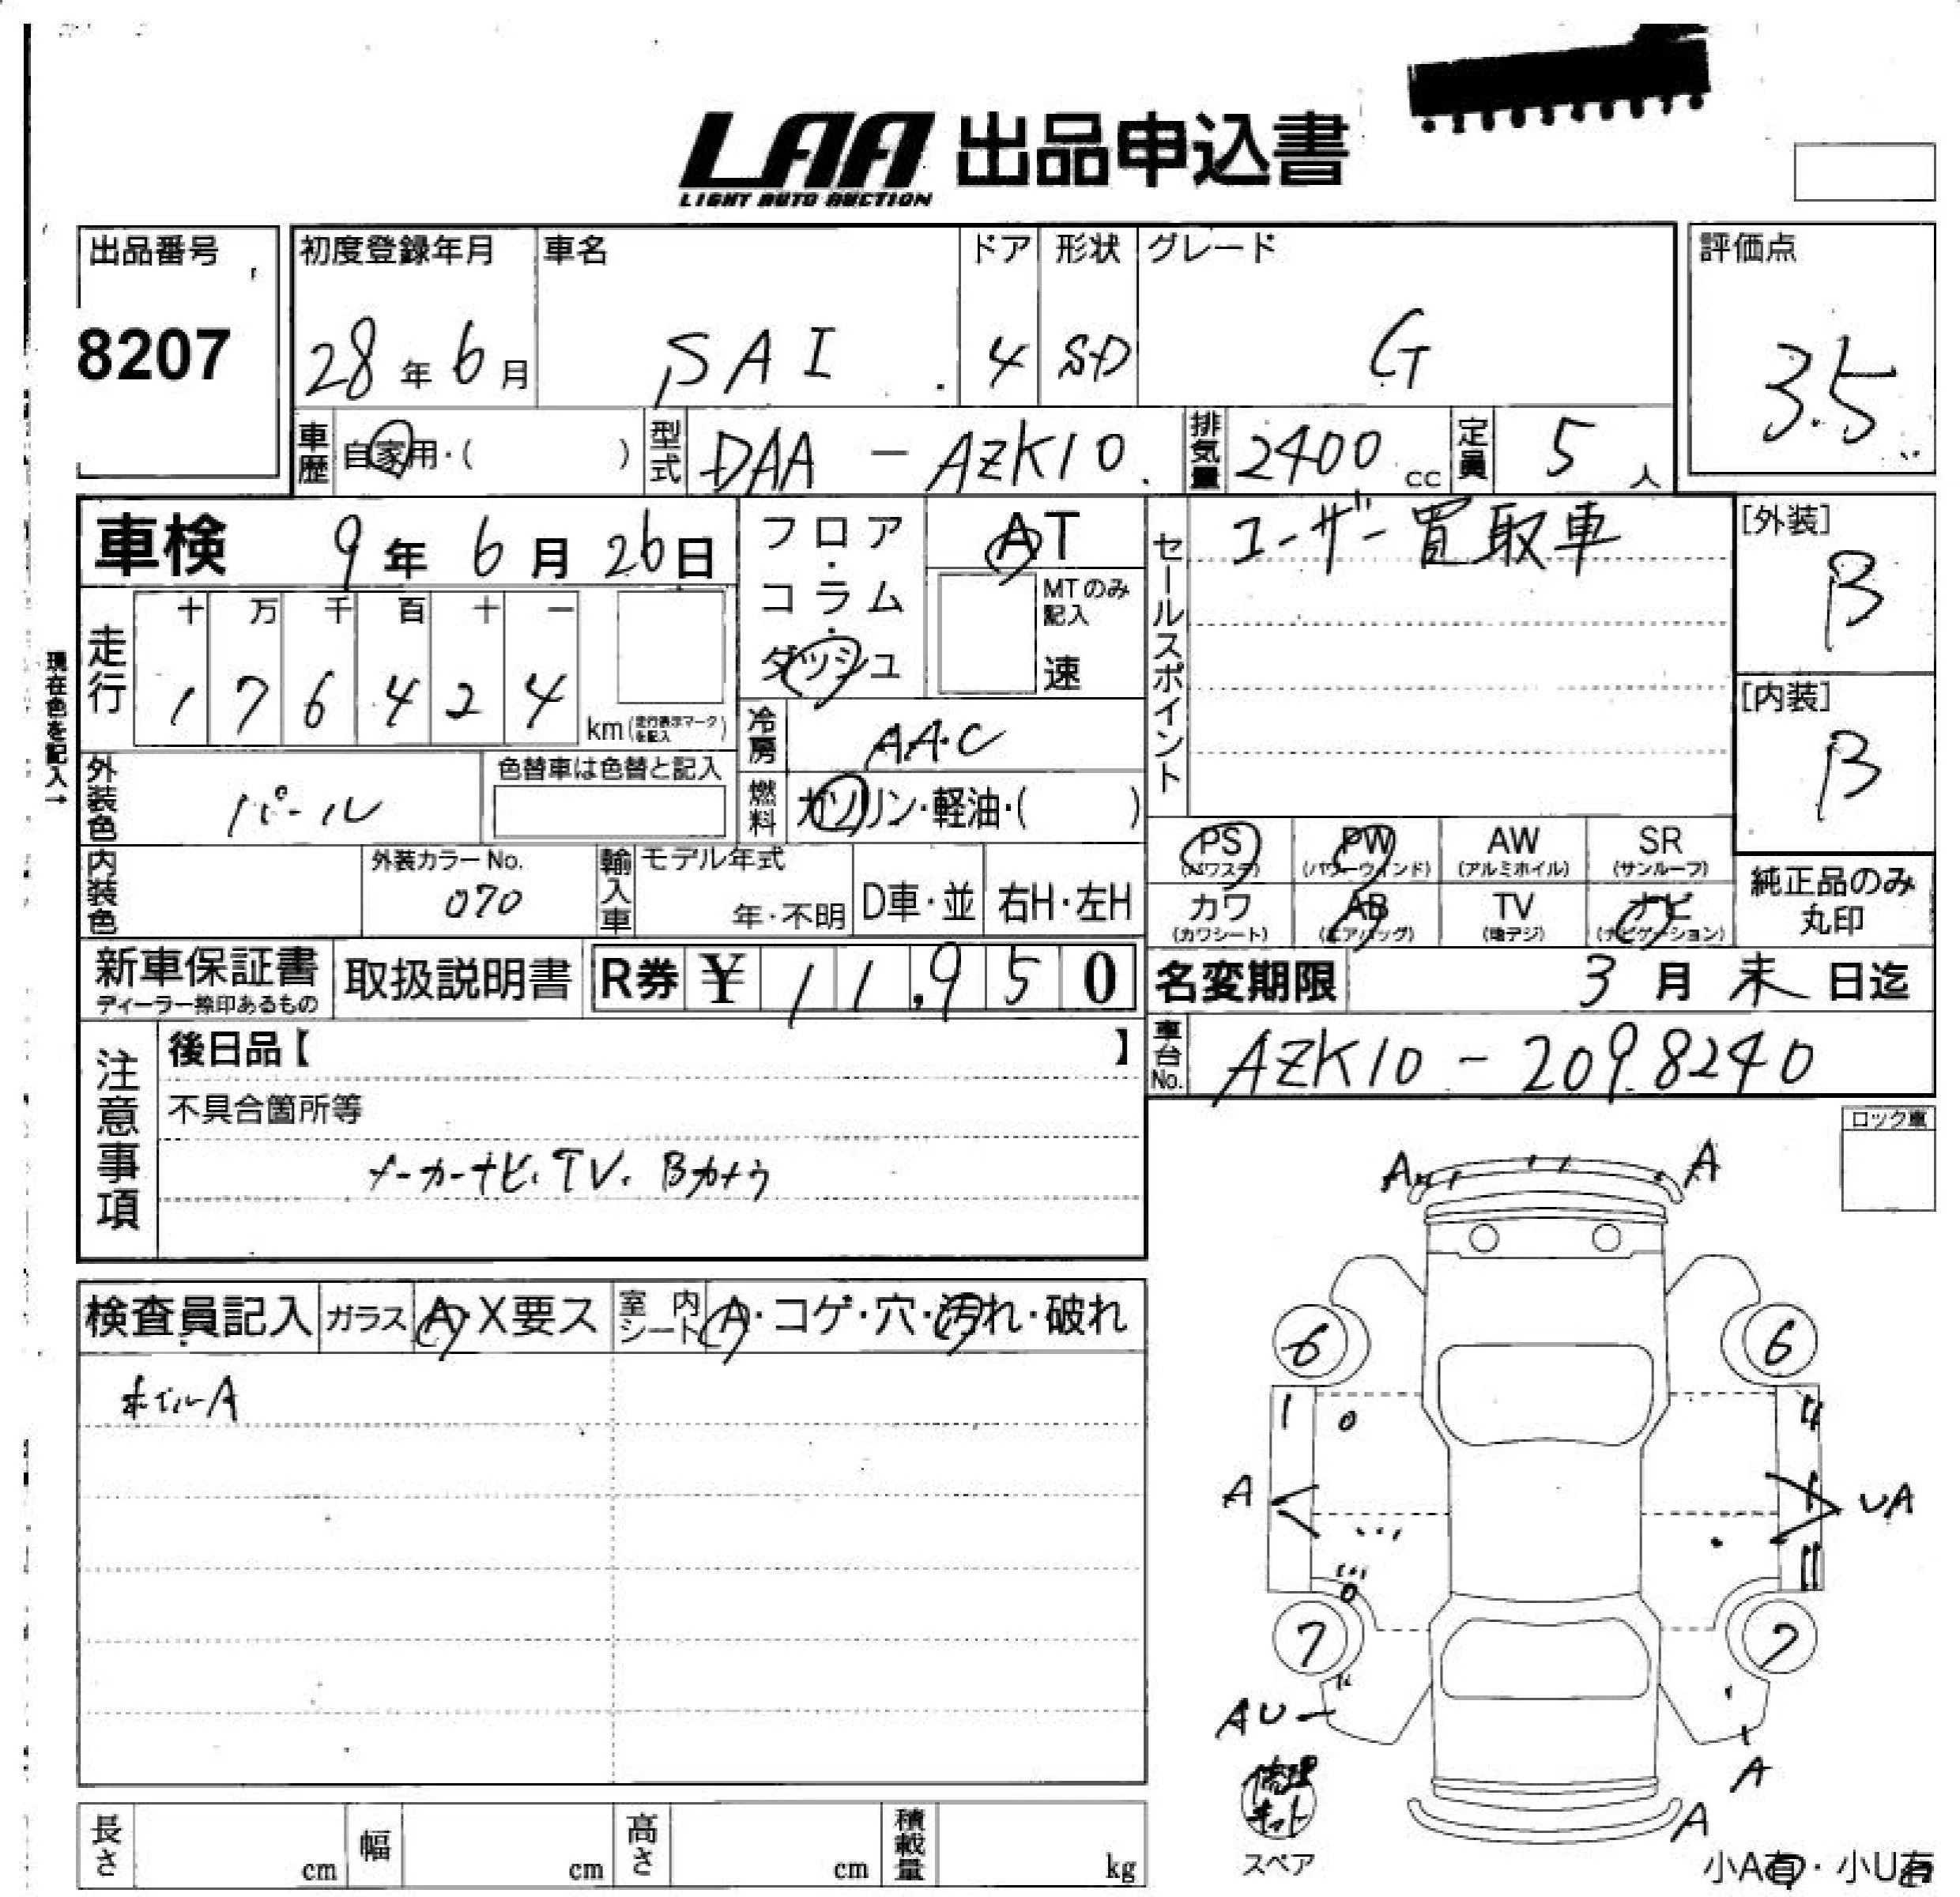 LAA 出品申込書
LIGHT AUTO AUCTION
出品番号 初度登録年月 車名 ドア 形状 グレード 評価点
8207 28年6月 SAI 4 SD G 3.5
車歴 自家用・( ) 型式 DAA-AZK10 排気量 2400cc 定員 5人
車検 9年6月26日 フロア・コラム・ダッシュ AT
MTのみ記入 速
セールスポイント ユーザー買取車
[外装] B
現在色を記入→
走行 十 万 千 百 十 一
1 7 6 4 2 4 km (走行表示マークを記入)
[内装] B
冷房 AAC
外装色 パール 色替車は色替と記入
燃料 ガソリン・軽油・( )
PS (パワステ) PW (パワーウインド) AW (アルミホイル) SR (サンルーフ)
内装色 外装カラーNo. 070 輸入車 モデル年式 年・不明 D車・並 右H・左H
カワ (カワシート) AB (エアバッグ) TV (地デジ) ナビ (ナビゲーション)
純正品のみ丸印
新車保証書 取扱説明書 R券 ¥ 11,950
ディーラー捺印あるもの
名変期限 3月末日迄
車台No. AZK10-2098240
注意事項 後日品【 】
不具合箇所等
メーカーナビ.TV.Bカメラ
ロック車
A A
検査員記入 ガラス A・X要ス 室内シート A・コゲ・穴・汚れ・破れ
ホイルA
6 6
A UA
7 7
AU
A
A
修理キット
スペア
小A有・小U有
長さ cm 幅 cm 高さ cm 積載量 kg